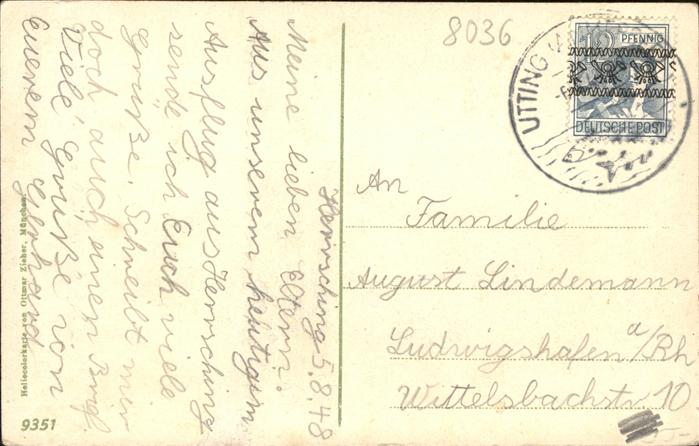 8036
12 PFENNIG
DEUTSCHE POST
UTTING
Herrsching 5.8.48
Meine lieben Eltern.
Aus unserem heutigem
Ausflug aus Herrsching
sende ich Euch viele
Grüße. Schreibt mir
doch auch einen Brief.
Viele Grüße von
Euerem Gerhard
An
Familie
August Lindemann
Ludwigshafen a/Rh
Wittelsbachstr 10
Heliocolorkarte von Ottmar Zieher, München.
9351